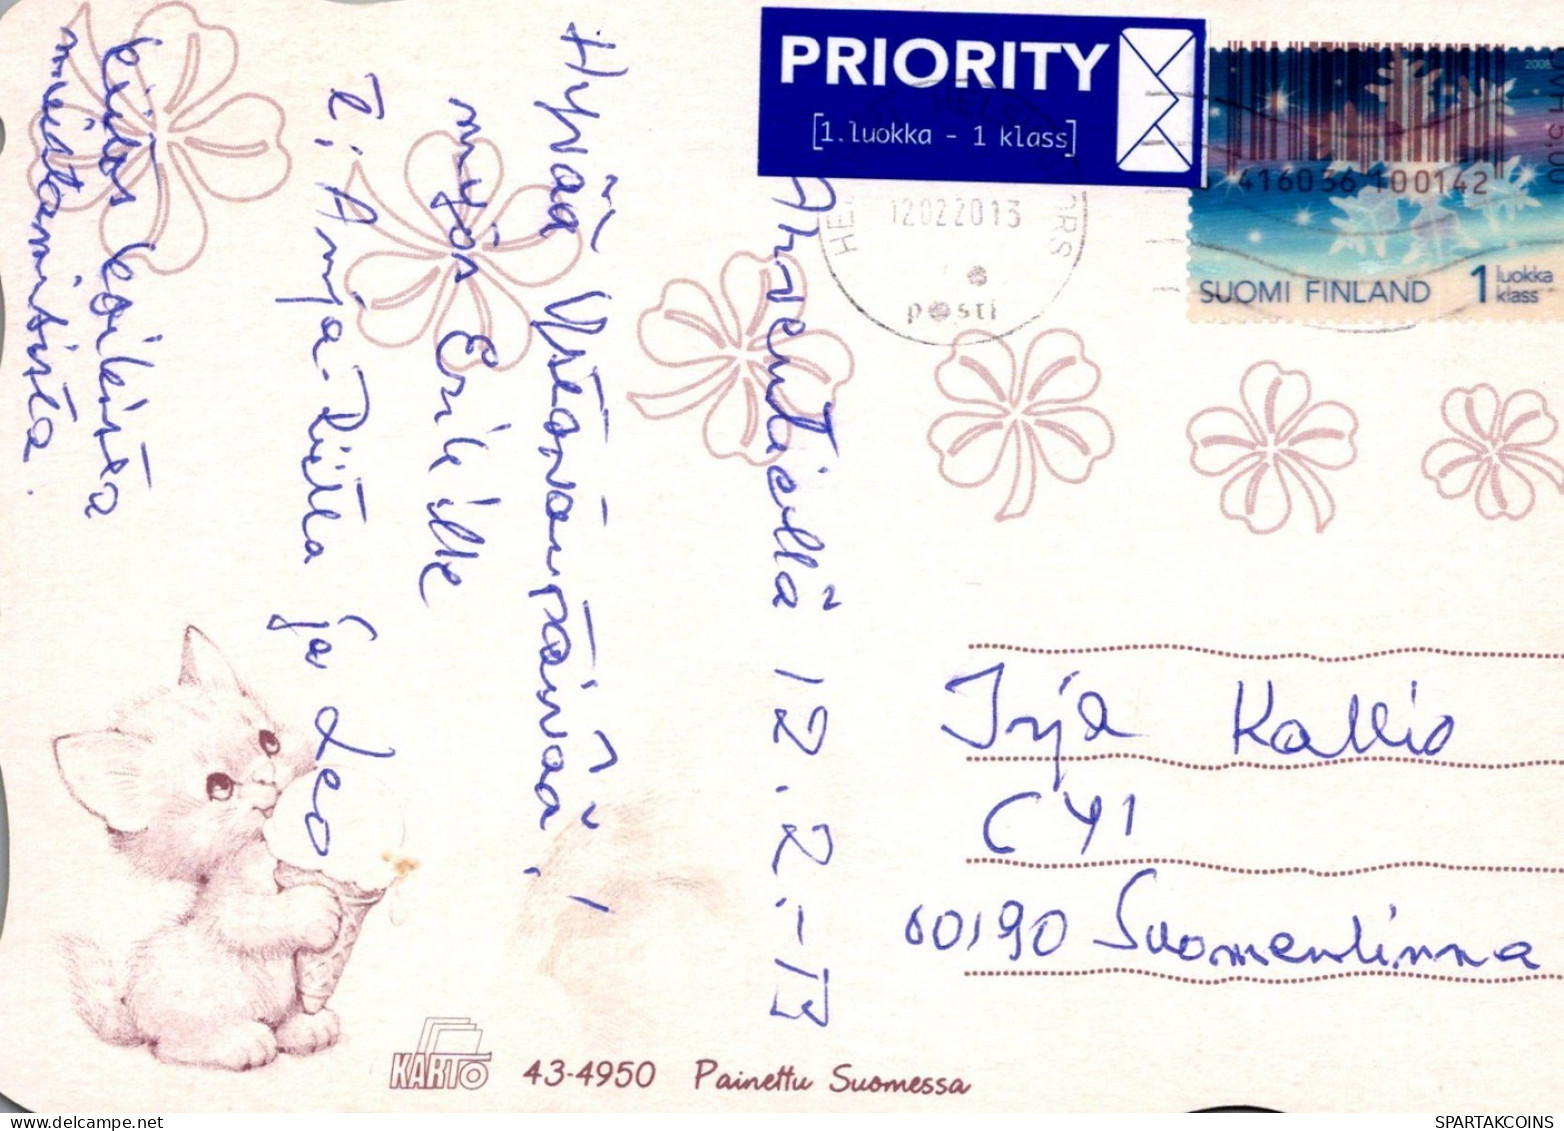 PRIORITY
[1. luokka - 1 klass]
2008
416036 100142
SUOMI FINLAND 1 luokka
klass
12022013
posti
Ahventiellä 12.2.-13
Hyvää Ystävänpäivää!
myös Erikille
T: Anja-Riitta ja Leo
Kiitos kaikista
muistamisista.
Irja Kallio
C 41
00190 Suomenlinna
KARTO 43-4950 Painettu Suomessa
SPARTAKCOINS